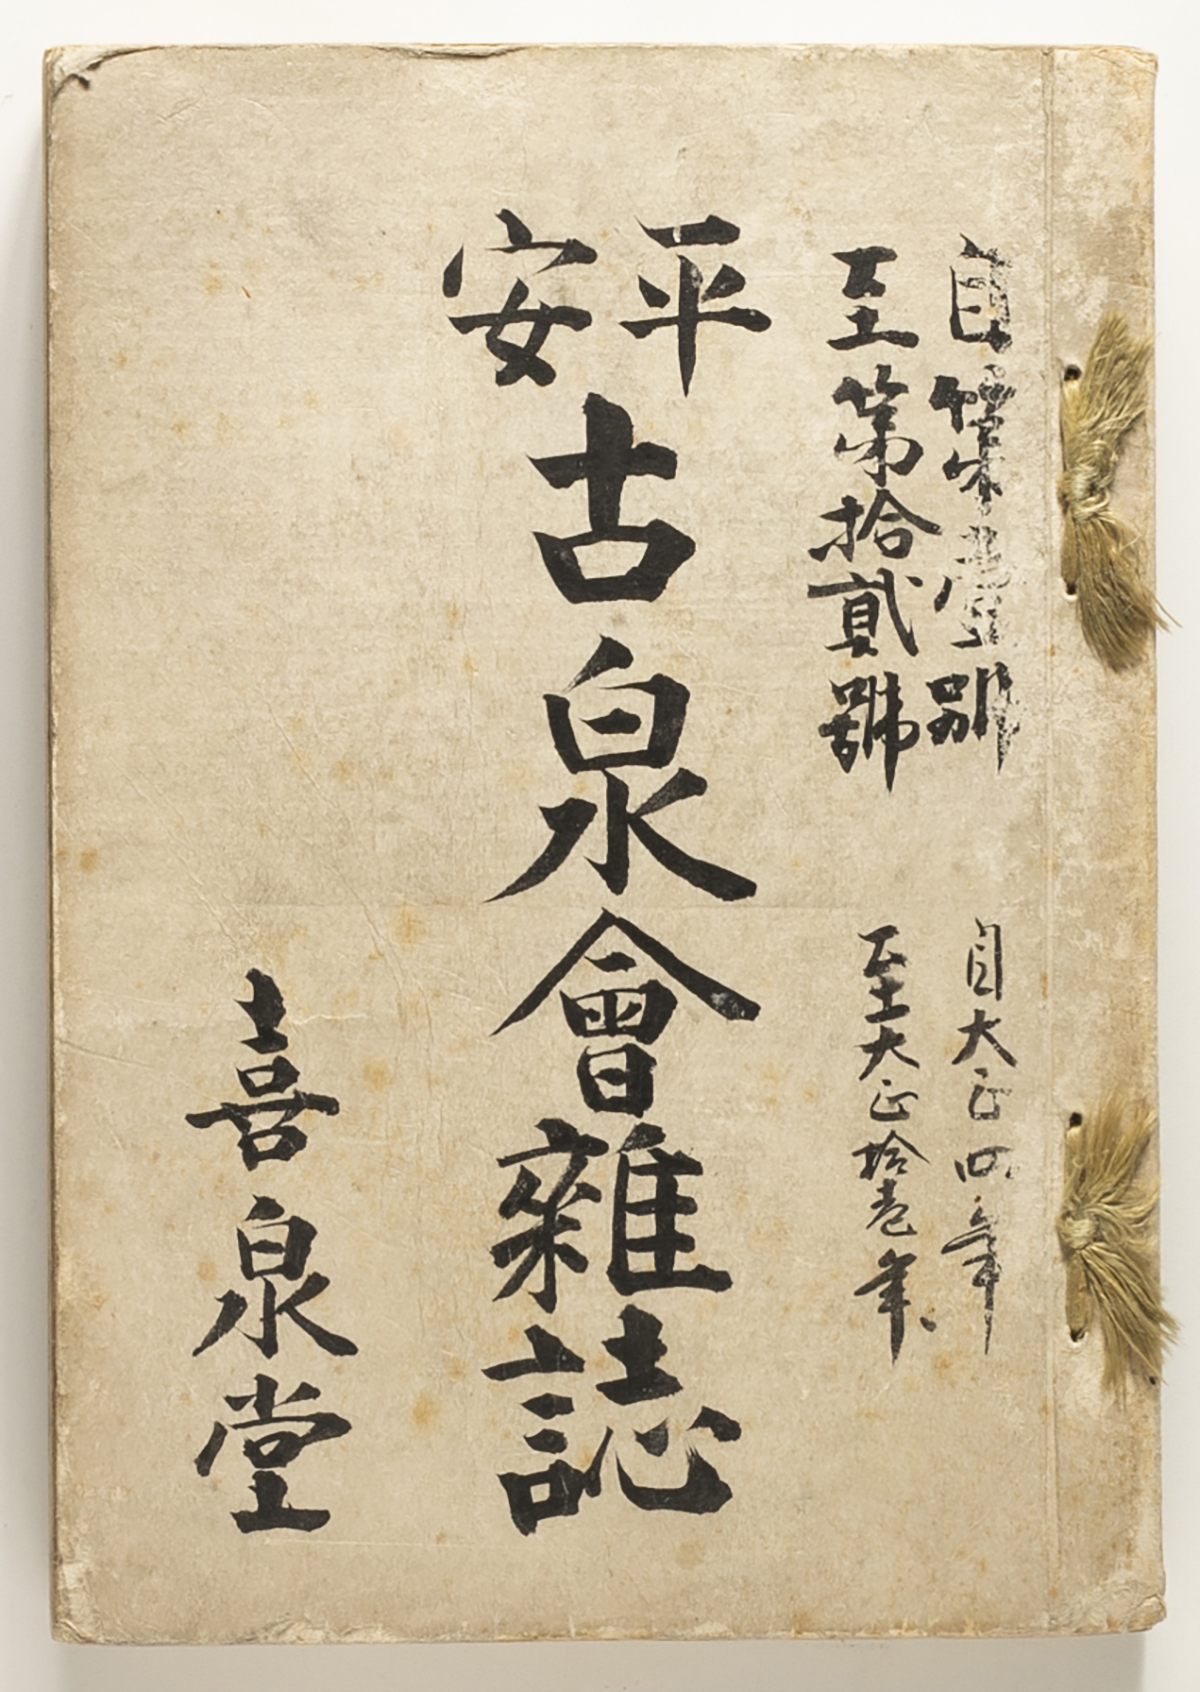 自第壹號
至第拾貳號
自大正四年
至大正拾壱年
平安古泉會雜誌
喜泉堂